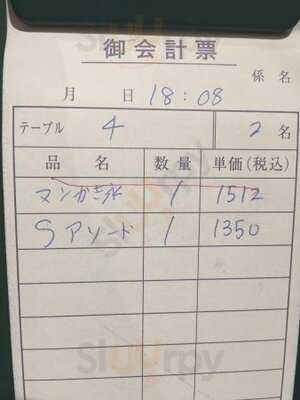 御会計票
係名
月 日 18:08
テーブル 4 2名
品名 数量 単価(税込)
マンガ氷 1 1512
Sアソード 1 1350
Sluurrpy
Sluurrpy
Sluurrpy